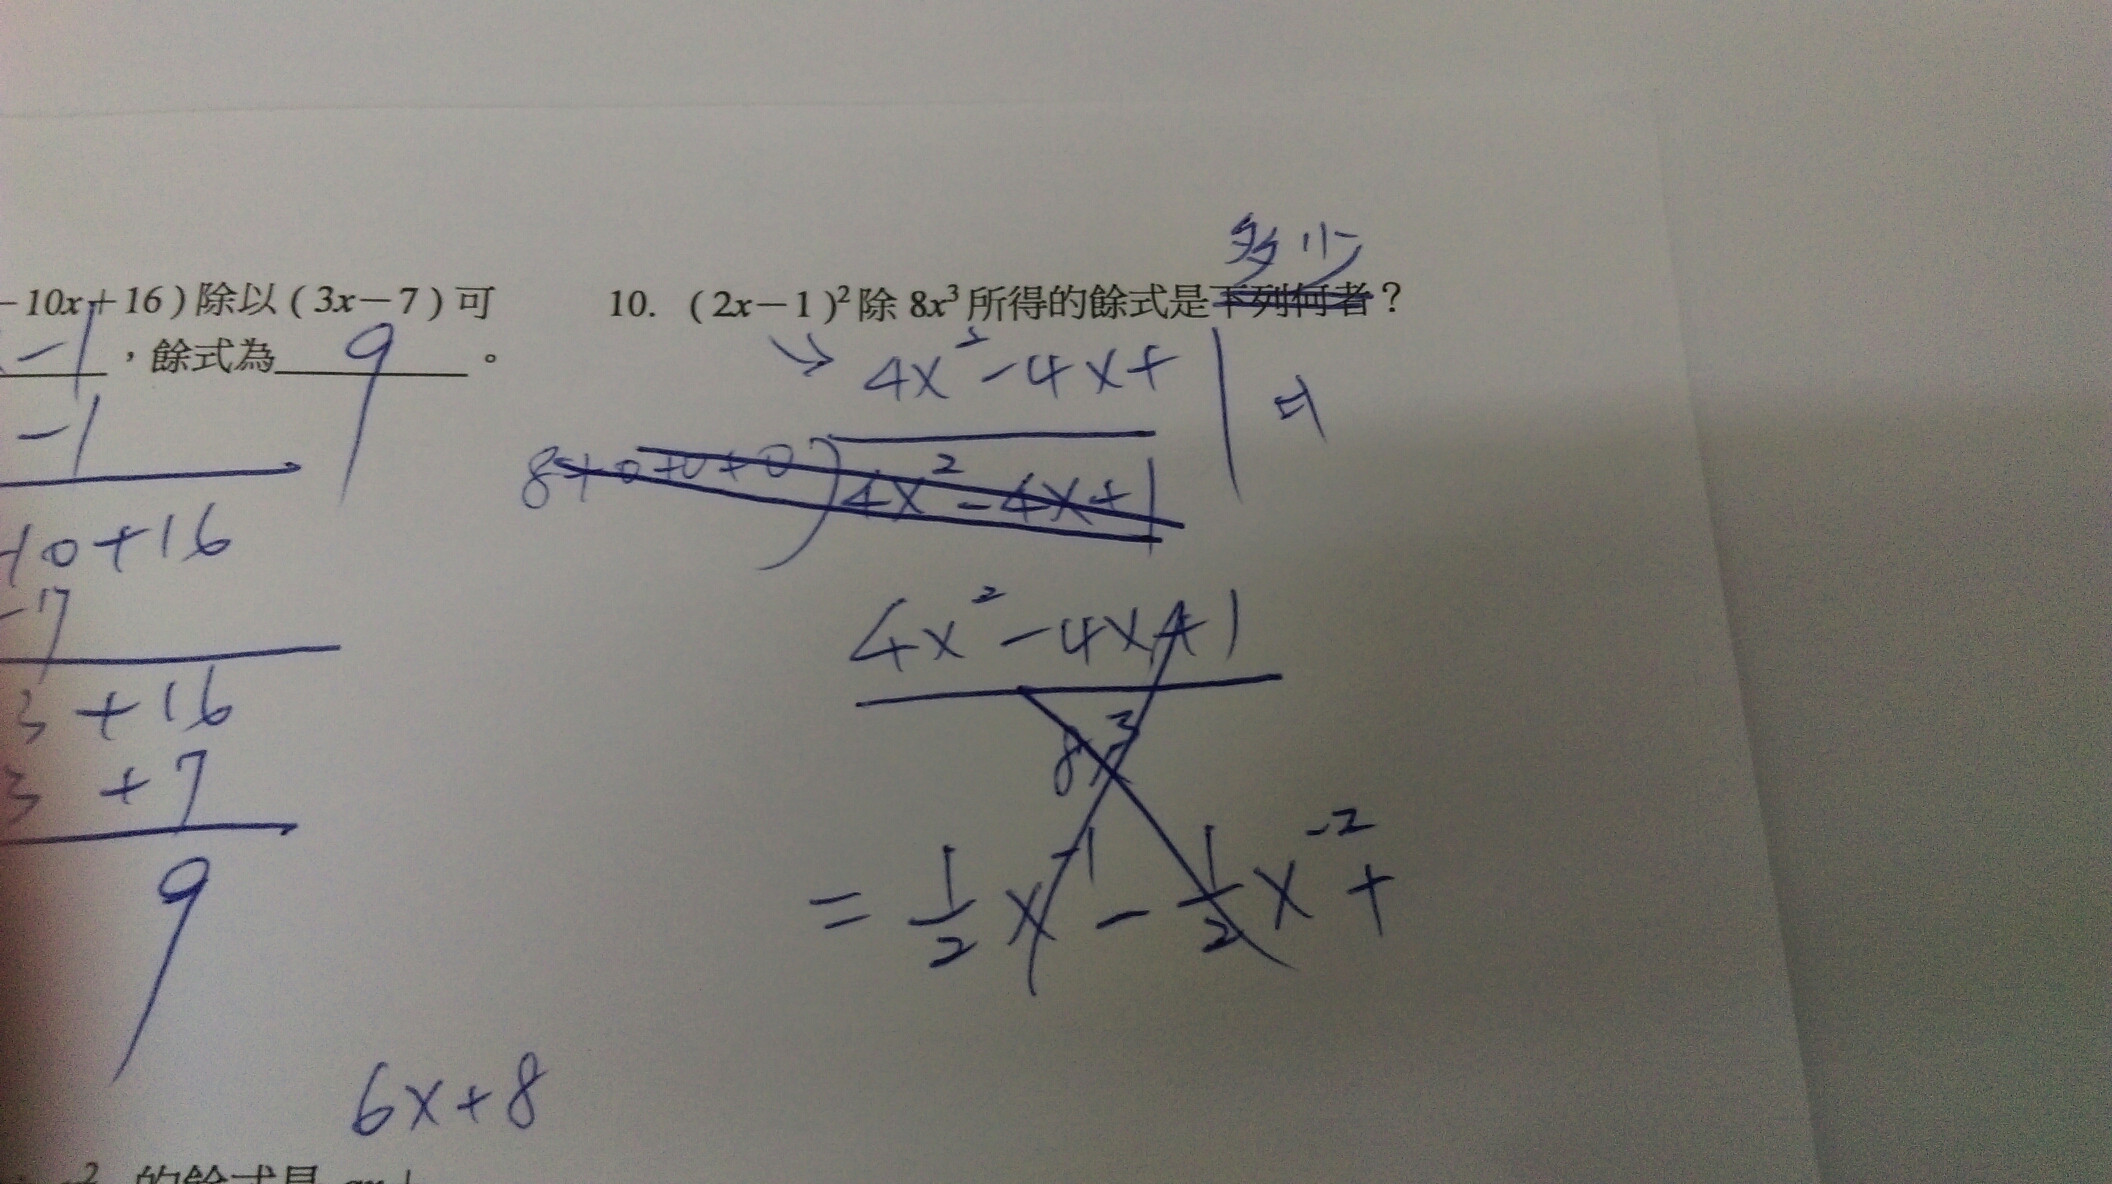 −10x+16)除以(3x−7)可
−1，餘式為 9 。
−1
-10+16
-7
3+16
3+7
9
6x+8
的餘式是
10. (2x−1)²除 8x³所得的餘式是下列何者？
多少
→ 4x²-4x+1
8+0+0+0)4x²-4x+1
4x²-4x+1
8x³
= 1/2 x⁻¹ - 1/2 x⁻² +